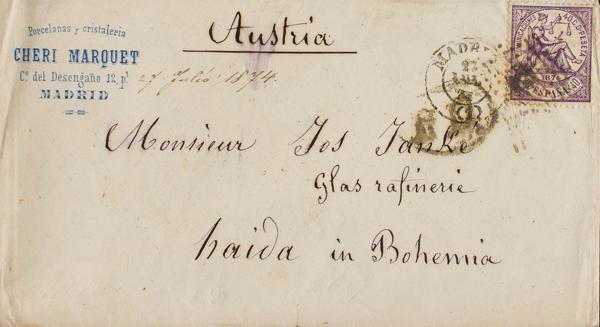 Porcelanas y cristaleria
CHERI MARQUET
Cº del Desengaño 12, pl
MADRID
27 Julio 1874.
Austria
MADRID
27
1874
Monsieur Jos Janke
Glas rafinerie
haida in Bohemia